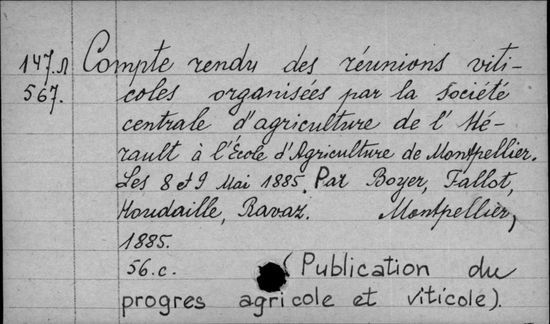 147.Л Compte rendu des réunions viti-
567. coles organisées par la Société
centrale d'agriculture de l'Hé-
rault à l'Ecole d'Agriculture de Montpellier.
Les 8 et 9 Mai 1885. Par Boyer, Fallot,
Houdaille, Ravaz. Montpellier,
1885.
56.c. (Publication du
progres agricole et viticole).